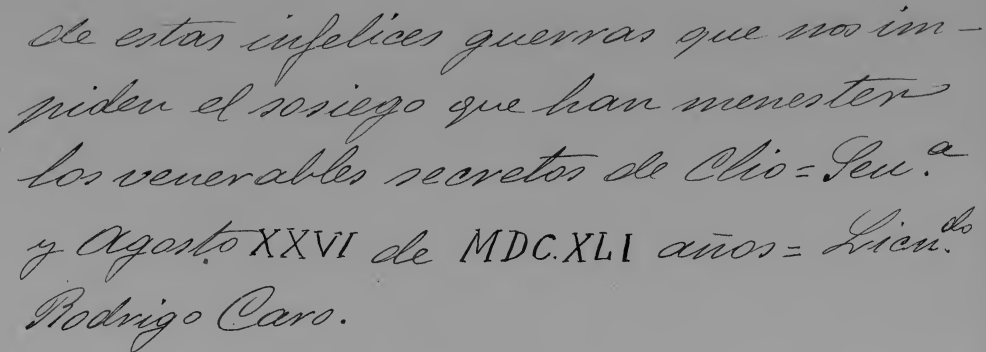 de estas infelices guerras que nos im-
piden el sosiego que han menester
los venerables secretos de Clio = Seu.ª
y Agosto XXVI de MDC.XLI años = Licn.do
Rodrigo Caro.